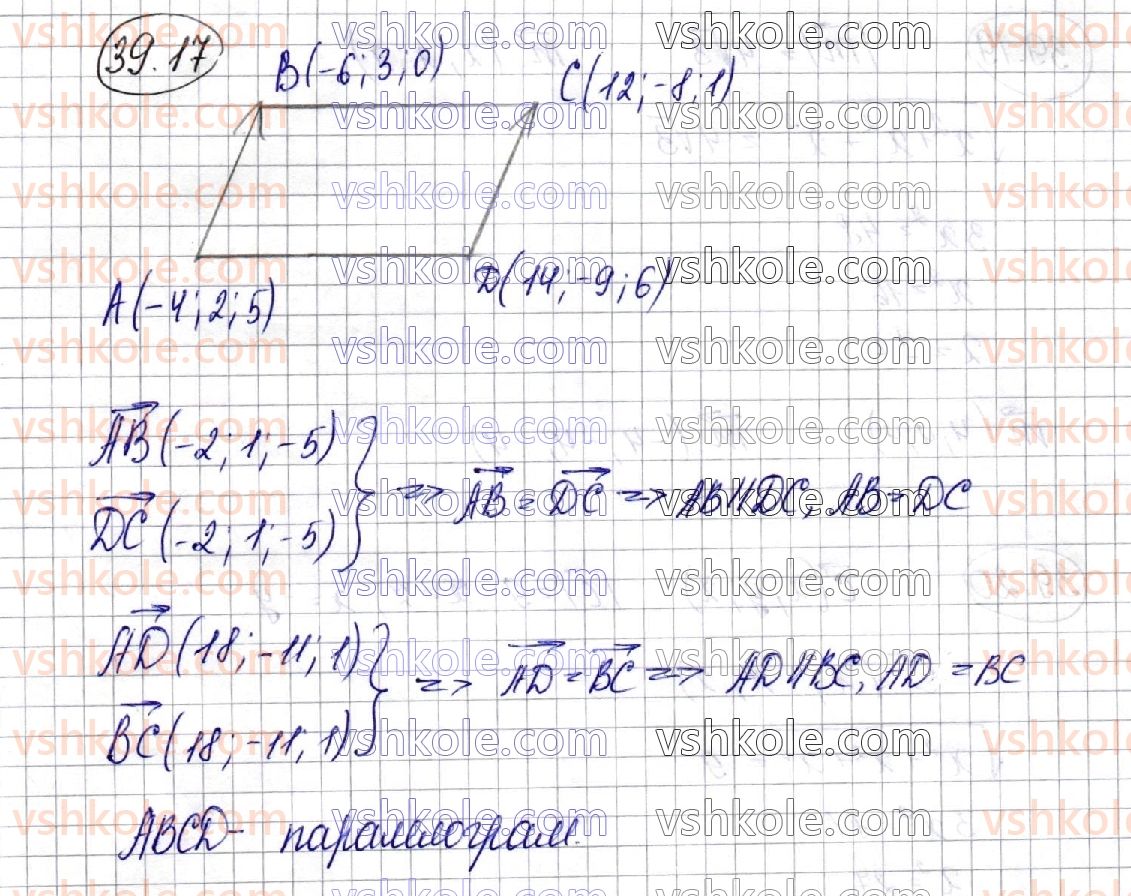 39.17
B(-6; 3; 0)
C(12; -8; 1)
A(-4; 2; 5)
D(14; -9; 6)
AB(-2; 1; -5)
DC(-2; 1; -5)
=> AB = DC => AB || DC, AB = DC
AD(18; -11; 1)
BC(18; -11; 1)
=> AD = BC => AD || BC, AD = BC
ABCD - паралелограм.
vshkole.com